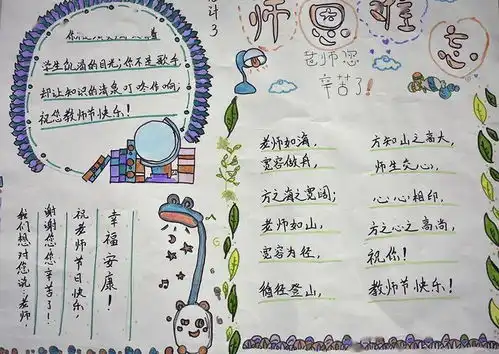 师恩难忘
老师您
辛苦了!
学生饥渴的目光;你不是歌手
却让知识的清泉叮咚作响;
祝您教师节快乐!
我们想对您说,老师:
谢谢您,您辛苦了!
祝老师节日快乐,
幸福安康!
老师如海,
宽容做舟,
方之海之宽阔;
老师如山,
宽容为径,
循径登山,
方知山之高大,
师生交心,
心心相印,
方之心之高尚,
祝你!
教师节快乐!